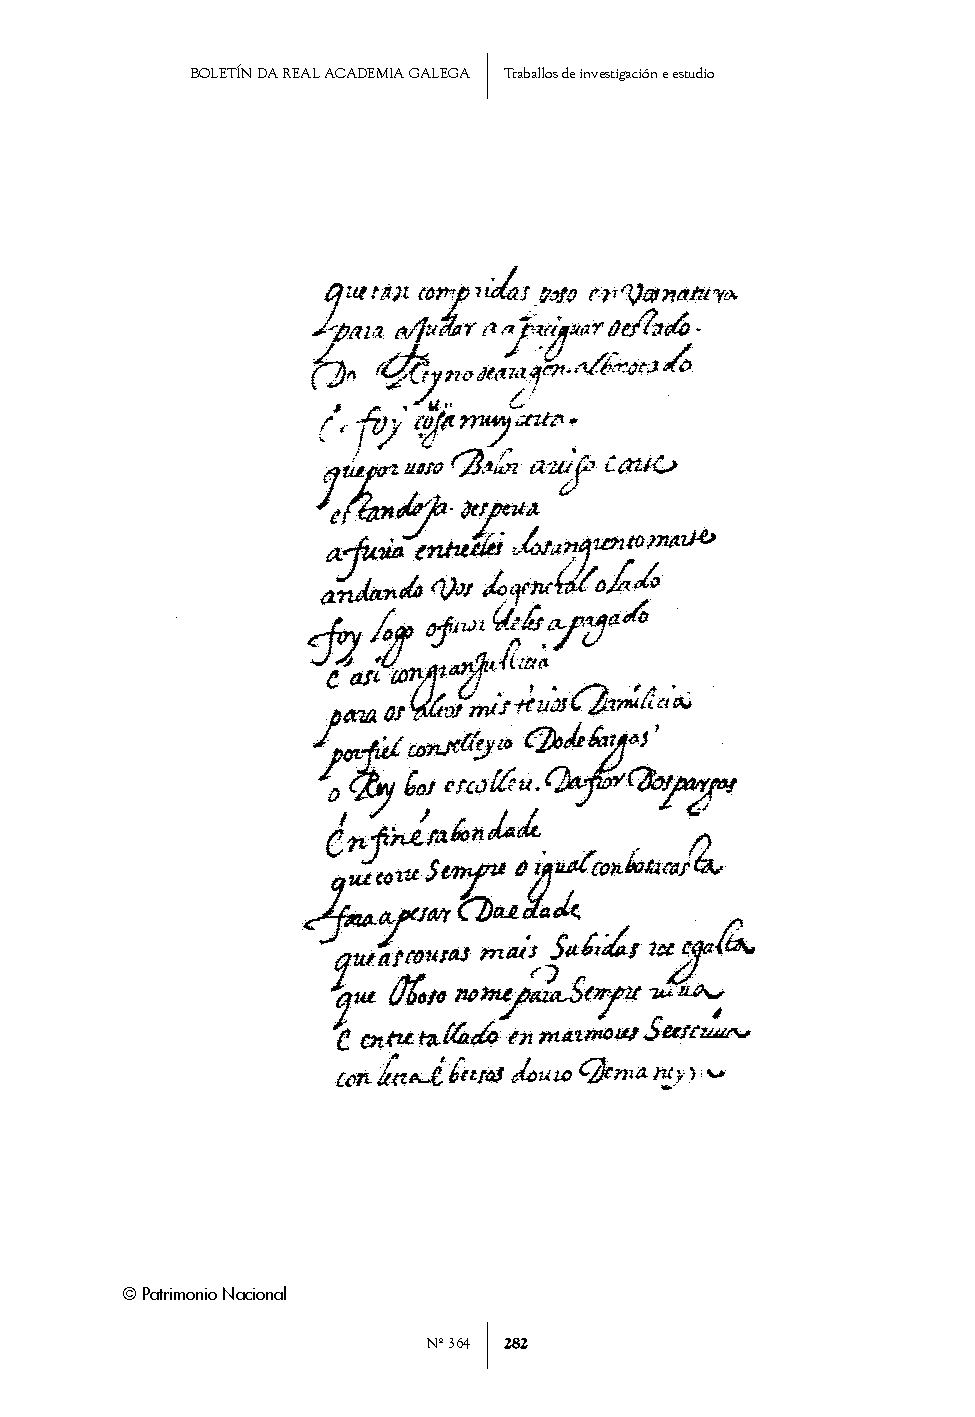 BOLETÍN DA REAL ACADEMIA GALEGA
Traballos de investigación e estudio
que tan compridas poso en Vosa natura
para aJudar a apaciguar o estado.
Do Reyno de aragon. alborotado
é. foy cosa muy certa.
que por uoso Balor auiso e arte
estando Ja. desperta
a furia entre eles do sangrento marte
andando Vos do general o lado
foy logo o furor deles apagado
é asi con gran Justicia
para os altos misterios Da milicia
por fiel conselleyro Do de bargas
o Rey bos escolleu. Da flor Dos pargas
én fin é sa bondade
que corre Sempre o igual con bosa casta
fara a pesar Da edade
que as cousas mais Subidas
que O boso nome para Sempre uiua
é entretallado en marmores Se escriua
con letra é bersos douro
© Patrimonio Nacional
Nº 364
282